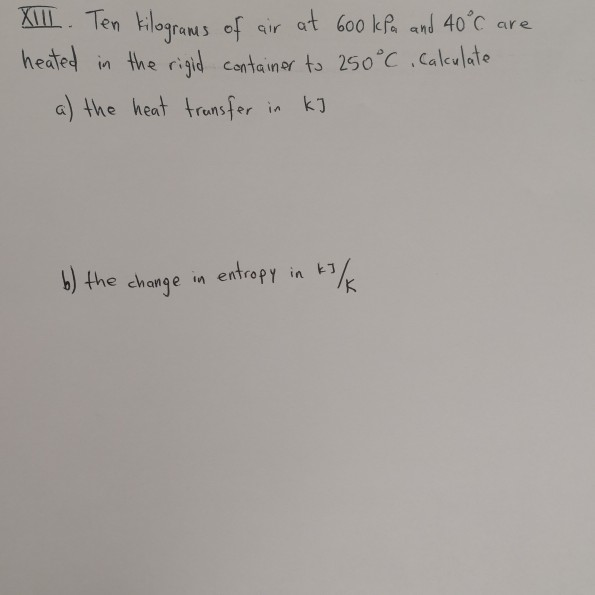 XIII. Ten kilograms of air at 600 kPa and 40°C are
heated in the rigid container to 250°C. Calculate
a) the heat transfer in kJ
b) the change in entropy in kJ/K